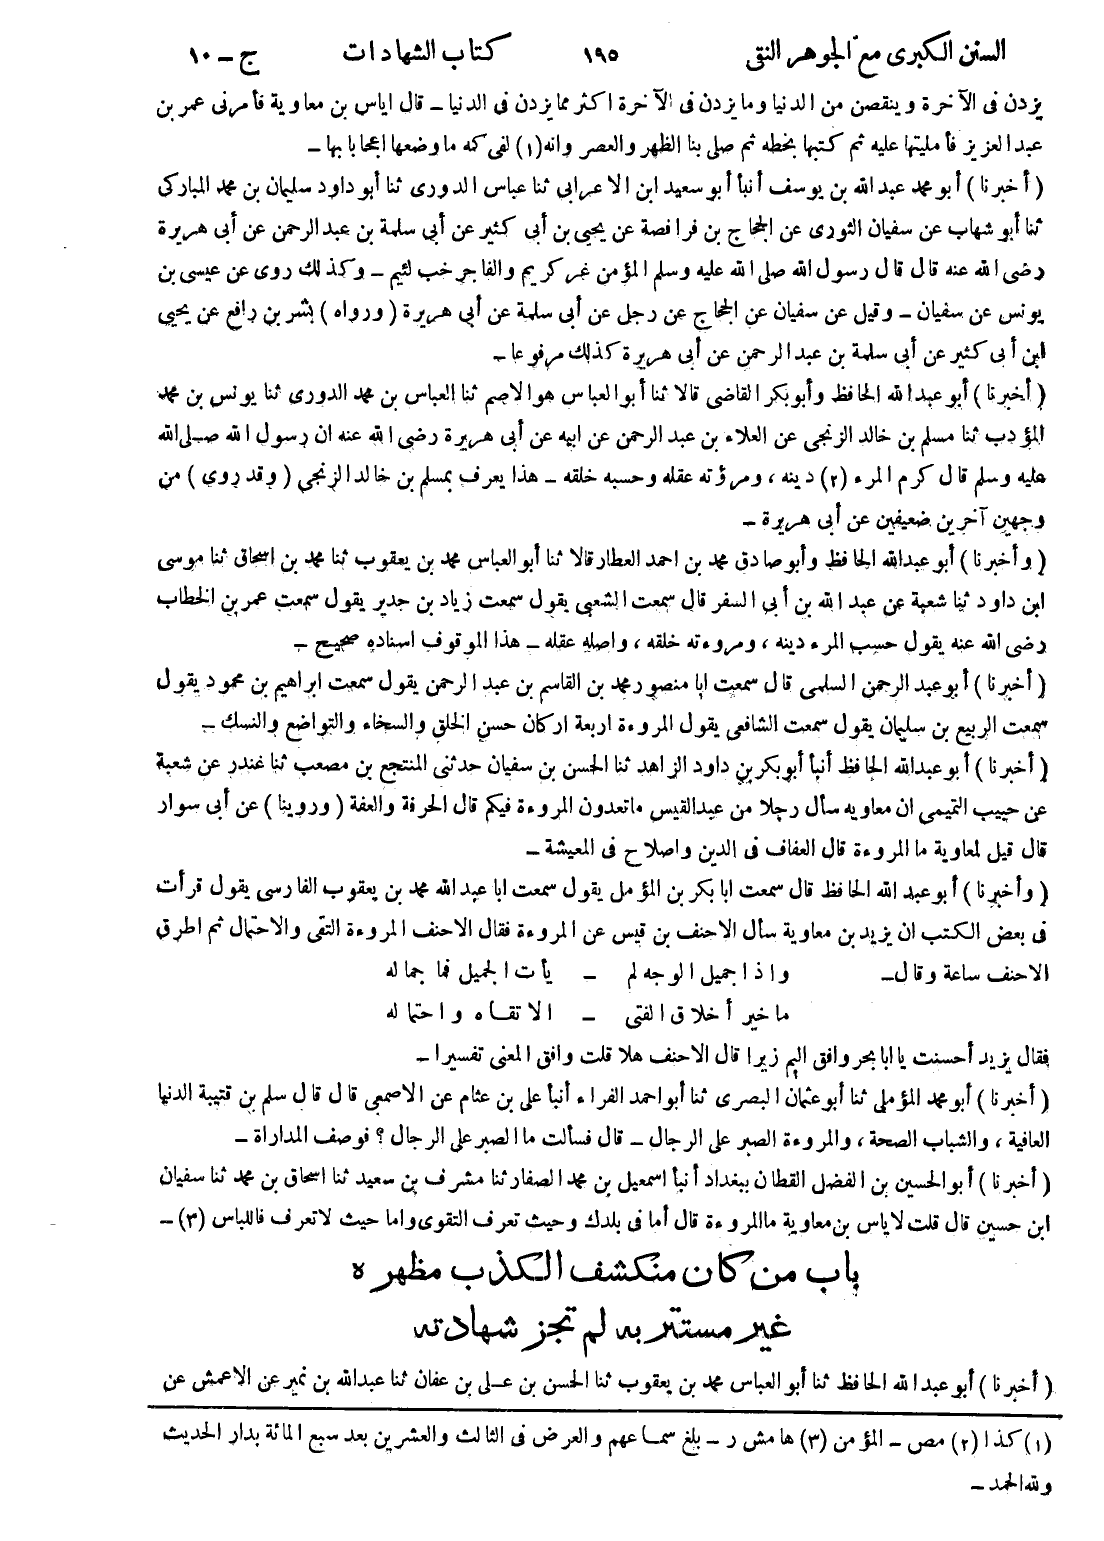 السنن الكبرى مع الجوهر النقى ١٩٥ كتاب الشهادات ج - ١٠
يزدن فى الآخرة وينقصن من الدنيا وما يزدن فى الآخرة اكثر مما يزدن فى الدنيا - قال اياس بن معاوية فأمرنى عمر بن
عبد العزيز فأمليتها عليه ثم كتبها بخطه ثم صلى بنا الظهر والعصر وانه (١) لفى كمه ما وضعها اعجابا بها -
(أخبرنا) أبو محمد عبد الله بن يوسف أنبأ أبو سعيد ابن الاعرابى ثنا عباس الدورى ثنا أبو داود سليمان بن محمد المباركى
ثنا أبو شهاب عن سفيان الثورى عن الحجاج بن فرافصة عن يحيى بن أبى كثير عن أبى سلمة بن عبد الرحمن عن أبى هريرة
رضى الله عنه قال قال رسول الله صلى الله عليه وسلم المؤمن غر كريم والفاجر خب لئيم - وكذلك روى عن عيسى بن
يونس عن سفيان - وقيل عن سفيان عن الحجاج عن رجل عن أبى سلمة عن أبى هريرة (ورواه) بشر بن رافع عن يحيى
ابن أبى كثير عن أبى سلمة بن عبد الرحمن عن أبى هريرة كذلك مرفوعا -
(أخبرنا) أبو عبد الله الحافظ وأبو بكر القاضى قالا ثنا أبو العباس هو الاصم ثنا العباس بن محمد الدورى ثنا يونس بن محمد
المؤدب ثنا مسلم بن خالد الزنجى عن العلاء بن عبد الرحمن عن ابيه عن أبى هريرة رضى الله عنه ان رسول الله صلى الله
عليه وسلم قال كرم المرء (٢) دينه ، ومرؤته عقله وحسبه خلقه - هذا يعرف بمسلم بن خالد الزنجى (وقد روى) من
وجهين آخرين ضعيفين عن أبى هريرة -
(وأخبرنا) أبو عبد الله الحافظ وأبو صادق محمد بن احمد العطار قالا ثنا أبو العباس محمد بن يعقوب ثنا محمد بن اسحاق ثنا موسى
ابن داود ثنا شعبة عن عبد الله بن أبى السفر قال سمعت الشعبى يقول سمعت زياد بن حدير يقول سمعت عمر بن الخطاب
رضى الله عنه يقول حسب المرء دينه ، ومروءته خلقه ، واصله عقله - هذا الموقوف اسناده صحيح -
(أخبرنا) أبو عبد الرحمن السلمى قال سمعت ابا منصور محمد بن القاسم بن عبد الرحمن يقول سمعت ابراهيم بن محمود يقول
سمعت الربيع بن سليمان يقول سمعت الشافعى يقول المروءة اربعة اركان حسن الخلق والسخاء والتواضع والنسك -
(أخبرنا) أبو عبد الله الحافظ أنبأ أبو بكر بن داود الزاهد ثنا الحسن بن سفيان حدثنى المنتجع بن مصعب ثنا غندر عن شعبة
عن حبيب التميمى ان معاويه سأل رجلا من عبد القيس ما تعدون المروءة فيكم قال الحرفة والعفة (وروينا) عن أبى سوار
قال قيل لمعاوية ما المروءة قال العفاف فى الدين واصلاح فى المعيشة -
(وأخبرنا) أبو عبد الله الحافظ قال سمعت ابا بكر بن المؤمل يقول سمعت ابا عبد الله محمد بن يعقوب الفارسى يقول قرأت
فى بعض الكتب ان يزيد بن معاوية سأل الاحنف بن قيس عن المروءة فقال الاحنف المروءة التقى والاحتمال ثم اطرق
الاحنف ساعة وقال- واذا جميل الوجه لم - يأت الجميل فما جماله
ما خير أخلاق الفتى - الا تقاه واحتماله
فقال يزيد أحسنت يا ابا بحر وافق اليم زيرا قال الاحنف هلا قلت وافق المعنى تفسيرا -
(أخبرنا) أبو محمد المؤملى ثنا أبو عثمان البصرى ثنا أبو احمد الفراء أنبأ على بن عثام عن الاصمعى قال قال سلم بن قتيبة الدنيا
العافية ، والشباب الصحة ، والمروءة الصبر على الرجال - قال فسألت ما الصبر على الرجال ؟ فوصف المداراة -
(أخبرنا) أبو الحسين بن الفضل القطان ببغداد أنبأ اسمعيل بن محمد الصفار ثنا مشرف بن سعيد ثنا اسحاق بن محمد ثنا سفيان
ابن حسين قال قلت لاياس بن معاوية ما المروءة قال أما فى بلدك وحيث تعرف التقوى واما حيث لا تعرف فاللباس (٣) -
باب من كان منكشف الكذب مظهره
غير مستتر به لم تجز شهادته
(أخبرنا) أبو عبد الله الحافظ ثنا أبو العباس محمد بن يعقوب ثنا الحسن بن على بن عفان ثنا عبد الله بن نمير عن الاعمش عن
(١) كذا (٢) مص - المؤمن (٣) هامش ر - بلغ سماعهم والعرض فى الثالث والعشرين بعد سبع المائة بدار الحديث
ولله الحمد -